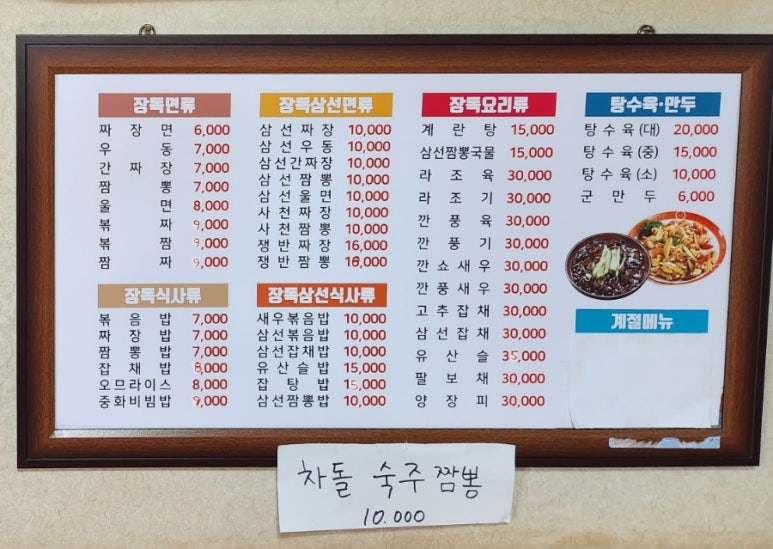 장독면류
짜장면 6,000
우동 7,000
간짜장 7,000
짬뽕 7,000
울면 8,000
볶짜 9,000
볶짬 9,000
짬짜 9,000
장독식사류
볶음밥 7,000
짜장밥 7,000
짬뽕밥 7,000
잡채밥 8,000
오므라이스 8,000
중화비빔밥 9,000
장독삼선면류
삼선짜장 10,000
삼선우동 10,000
삼선간짜장 10,000
삼선짬뽕 10,000
삼선울면 10,000
사천짜장 10,000
사천짬뽕 10,000
쟁반짜장 16,000
쟁반짬뽕 16,000
장독삼선식사류
새우볶음밥 10,000
삼선볶음밥 10,000
삼선잡채밥 10,000
유산슬밥 15,000
잡탕밥 15,000
삼선짬뽕밥 10,000
장독요리류
계란탕 15,000
삼선짬뽕국물 15,000
라조육 30,000
라조기 30,000
깐풍육 30,000
깐풍기 30,000
깐쇼새우 30,000
깐풍새우 30,000
고추잡채 30,000
삼선잡채 30,000
유산슬 35,000
팔보채 30,000
양장피 30,000
탕수육·만두
탕수육(대) 20,000
탕수육(중) 15,000
탕수육(소) 10,000
군만두 6,000
계절메뉴
차돌 숙주 짬뽕
10.000